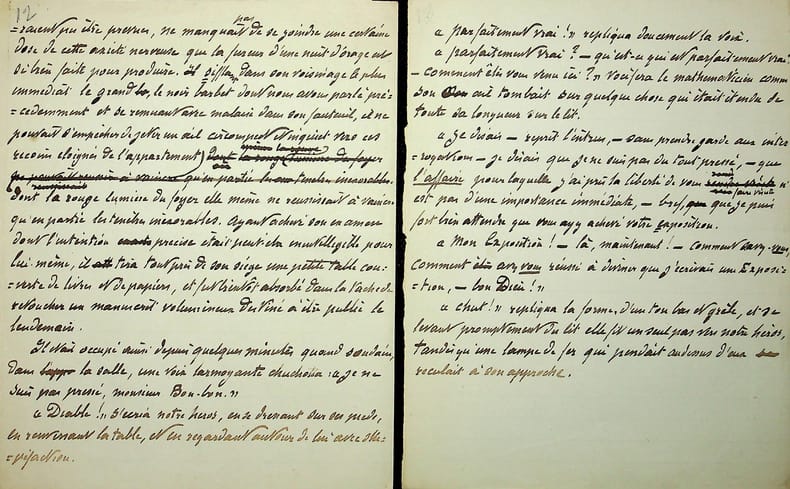 12
pas
=raient pu être prevues, ne manquait de se joindre une certaine
dose de cette anxiété nerveuse que la fureur d'une nuit d'orage est
si bien faite pour produire. Il siffla dans son voisinage le plus
immediat le grand le noir barbet dont nous avons parlé pré=
=cedemment et se remuant avec malaise dans son fauteuil, il ne
pouvait s'empecher de jeter un œil circonspect et inquiet vers ces
recoins éloignés de l'appartement,
dont la rouge lumière du foyer
qu'en partie les tenebres inexorables.
dont la rouge lumiere du foyer elle même ne reussissait à vaincre
qu'en partie les tenebres inexorables. Ayant achevé son examen
dont l'intention precise était peut être inintelligible pour
lui-même, il tira tout près de son siege une petite table cou=
=verte de livres et de papiers, et fut bientôt absorbé dans la tache de
retoucher un manuscrit volumineux destiné à être publié le
lendemain.
Il était occupé ainsi depuis quelques minutes quand soudain,
dans la salle, une voix larmoyante chuchota : « Je ne
suis pas pressé, monsieur Bon-bon. »
« Diable ! » s'écria notre heros, en se dressant sur ses pieds,
en renversant la table, et en regardant autour de lui avec stu=
=pefaction.
« Parfaitement vrai ! » repliqua doucement la voix.
« Parfaitement vrai ? – qu'est-ce qui est parfaitement vrai
– comment êtes vous venu ici ? » vocifera le mathematicien comme
son œil tombait sur quelque chose qui était étendu de
toute sa longueur sur le lit.
« Je disais – reprit l'intrus, – sans prendre garde aux inter=
=rogations – je disais que je ne suis pas du tout pressé, – que
l'affaire pour laquelle j'ai pris la liberté de vous
n'est pas d'une importance immediate, – bref, que je puis
fort bien attendre que vous ayez achevé votre Exposition.
« Mon Exposition ! – là, maintenant ! – comment savez-vous,
comment avez vous réussi à deviner que j'écrivais une Exposi=
=tion, – bon Dieu ! »
« Chut ! » repliqua la forme, d'un ton bas et grêle, et se
levant promptement du lit elle fit un seul pas vers notre heros,
tandis qu'une lampe de fer qui pendait audessus d'eux
reculait à son approche.